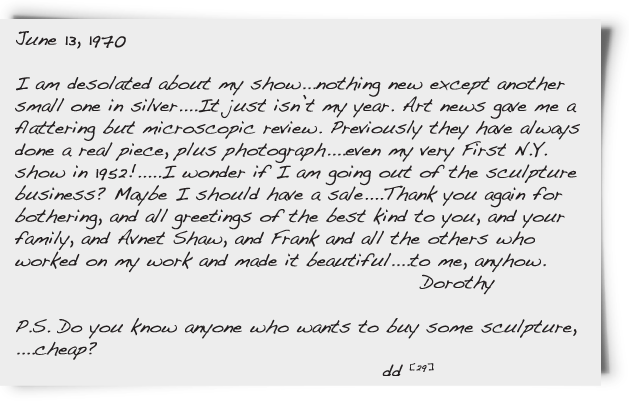 June 13, 1970
I am desolated about my show...nothing new except another
small one in silver....It just isn't my year. Art news gave me a
flattering but microscopic review. Previously they have always
done a real piece, plus photograph....even my very First N.Y.
show in 1952!.....I wonder if I am going out of the sculpture
business? Maybe I should have a sale....Thank you again for
bothering, and all greetings of the best kind to you, and your
family, and Avnet Shaw, and Frank and all the others who
worked on my work and made it beautiful....to me, anyhow.
Dorothy
P.S. Do you know anyone who wants to buy some sculpture,
....cheap?
dd [29]